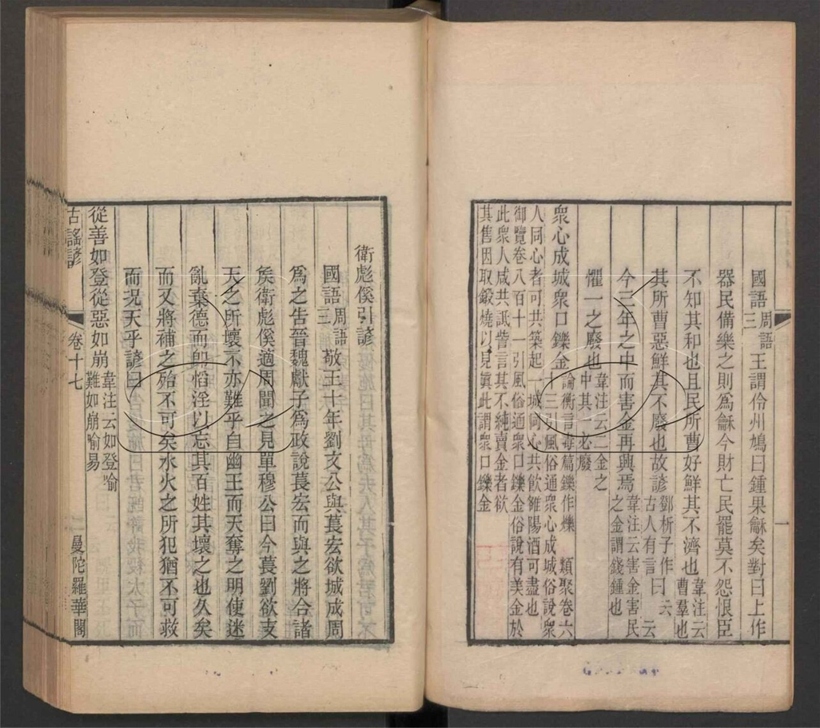 國語周語三王謂伶州鳩曰鍾果龢矣對曰上作
器民備樂之則為龢今財亡民罷莫不怨恨臣
不知其和也且民所曹好鮮其不濟也韋注云曹羣也
其所曹惡鮮其不廢也故諺鄧析子作古人有言曰云云
今三年之中而害金再興焉韋注云害金害民之金謂錢鍾也
懼一之廢也韋注云二金之中其一必廢
衆心成城衆口鑠金論衡言毒篇鑠作爍 類聚卷六十三引風俗通衆心成城俗說衆
人同心者可共築起一城同心共飲雒陽酒可盡也
御覽卷八百十一引風俗通衆口鑠金俗說有美金於
此衆人咸共詆訾言其不純賣金者欲
其售因取鍛燒以見真此謂衆口鑠金
一
衛彪傒引諺
國語周語三敬王十年劉文公與萇宏欲城成周
為之告晉魏獻子為政說萇宏而與之將合諸
矦衛彪傒適周聞之見單穆公曰今萇劉欲支
天之所壞不亦難乎自幽王而天奪之明使迷
亂棄德而即慆淫以忘其百姓其壞之也久矣
而又將補之殆不可矣水火之所犯猶不可救
而況天乎諺曰
從善如登從惡如崩韋注云如登喻難如崩喻易
古謠諺 卷十七 二 曼陀羅華閣